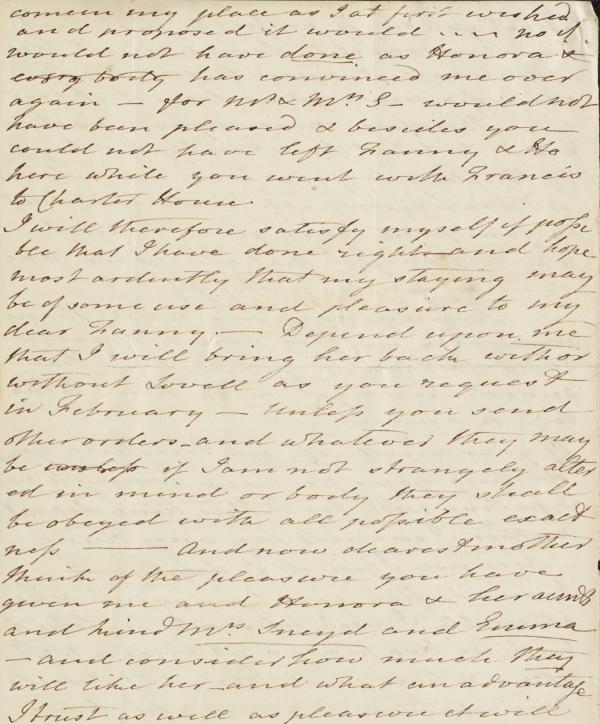 comein my place as I at first wished
and proposed it would no if
would not have done as Honora &
everybody has convinced me over
again — for Mr & Mrs S— would not
have been pleased & besides you
could not have left Fanny & Ho
here while you went with Francis
to Charter House.
I will therefore satisfy myself if possi
ble that I have done right and hope
most ardently that my staying may
be of some use and pleasure to my
dear Fanny. — Depend upon me
that I will bring her back with or
without Lovell as you request
in February — Unless you send
other orders — and whatever they may
be unless if I am not strangely alter
ed in mind or body they shall
be obeyed with all possible exact
ness —— And now dearest mother
think of the pleasure you have
given me and Honora & her aunts
and kind Mrs Sneyd and Emma
— and consider how much they
will like her — and what an advantage
I trust as well as pleasure it will